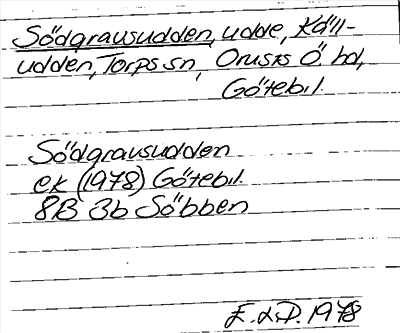 Södgravsudden, udde, Käll-
udden, Torps sn, Orusts Ö hd,
Götebl.
Södgravsudden
ek (1978) Götebl.
8B 3b Söbben
E. LD. 1978